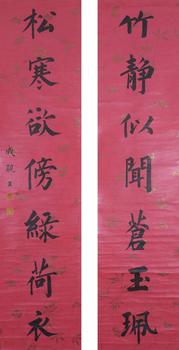 竹靜似聞蒼玉珮
松寒欲傍綠荷衣